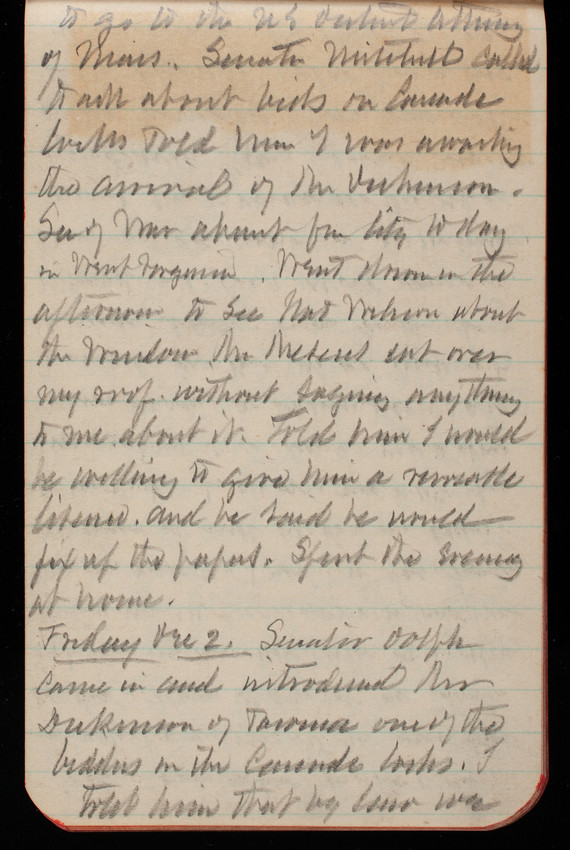 to go to the U S District Attorney
of Mass. Senator Mitchell called
to ask about bids on Cascade
locks Told him I was awaiting
the arrival of Mr Dickinson.
Sec of War absent fm city to day
in West Virginia. Went down in the
afternoon to see Nat Wilson about
the window Mr cut over
my roof without saying anything
to me about it. Told him I would
be willing to give him a revocable
license. and he said he would
fix up the papers. Spent the evening
at home.
Friday Dec 2. Senator Dolph
came in and introduced Mr
Dickinson of Tacoma one of the
bidders on the Cascade locks. I
told him that by law we